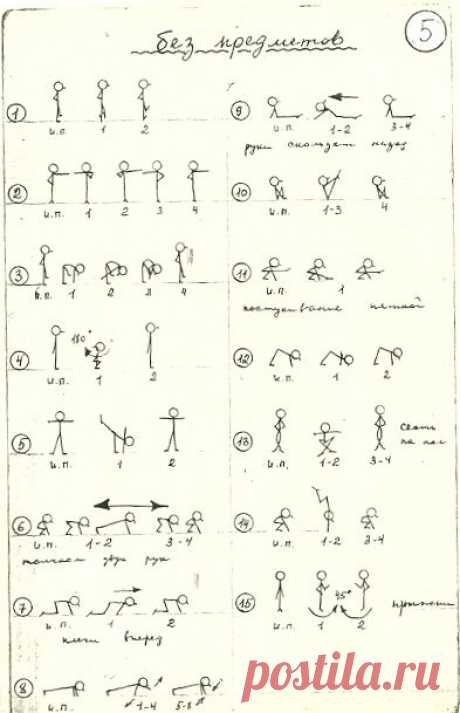 без предметов
5
1
и.п. 1 2
2
и.п. 1 2 3 4
3
и.п. 1 2 3 4
4
180°
и.п. 1 2
5
и.п. 1 2
6
и.п. 1-2 3-4
толчком двух рук
7
и.п. 1 2
плечи вперед
8
и.п. 1-4 5-8
9
и.п. 1-2 3-4
руки скользят назад
10
и.п. 1-3 4
11
и.п. 1
постукивание пяткой
12
и.п. 1 2
13
сесть
на пол
и.п. 1-2 3-4
14
и.п. 1-2 3-4
15
45°
прыжки
и.п. 1 2
postila.ru